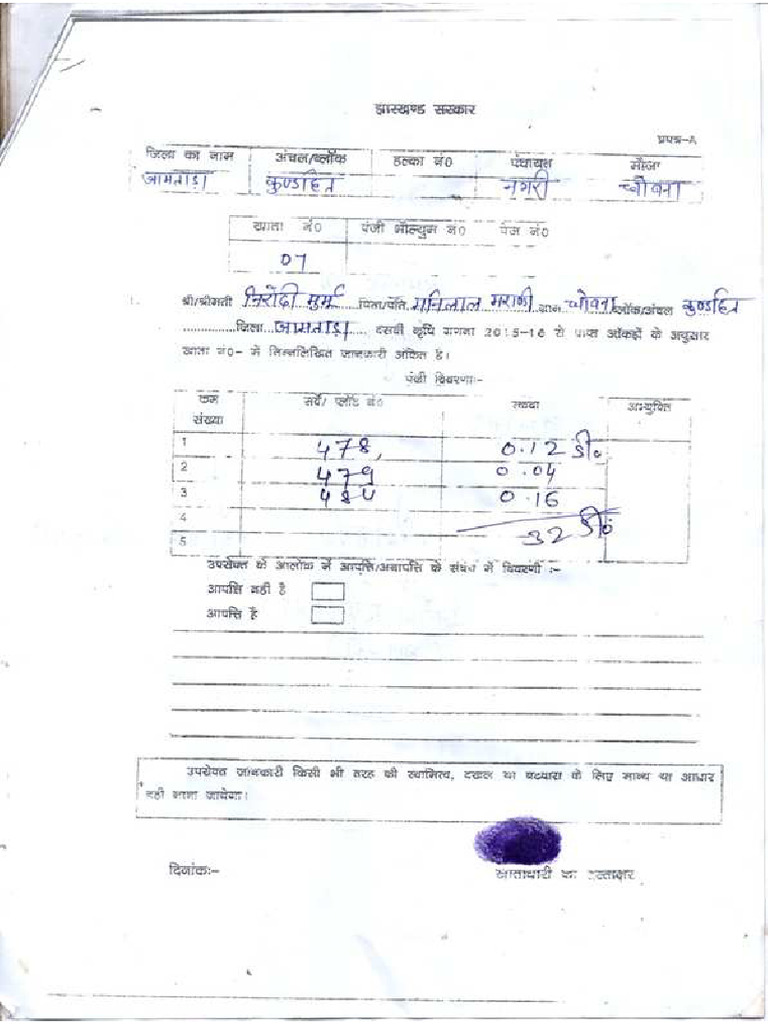 झारखण्ड सरकार
प्रपत्र-A
जिला का नाम अंचल/ब्लॉक हल्का नं0 पंचायत मौजा
जामताड़ा कुण्डहित नगरी चोवना
खाता नं0 पंजी भौल्युम नं0 पेज नं0
07
1. श्री/श्रीमती निरोदी मुर्मू पिता/पति मनिलाल मराण्डी ग्राम चोवना ब्लॉक/अंचल कुण्डहित
जिला जामताड़ा दसवीं कृषि गणना 2015-16 से प्राप्त आँकड़ों के अनुसार
खाता नं0- में निम्नलिखित जानकारी अंकित है।
पंजी विवरणी:-
क्रम संख्या सर्वे/ प्लॉट नं0 रकवा अभ्युक्ति
1 478, 0.12 डी०
2 479 0.04
3 0.16
4 32 डी०
5
उपरोक्त के आलोक में आपत्ति/अनापत्ति के संबंध में विवरणी :-
आपत्ति नहीं है
आपत्ति है
उपरोक्त जानकारी किसी भी तरह की स्वामित्व, दखल या बटवारा के लिए मान्य या आधार
नहीं माना जायेगा।
दिनांक:-
खाताधारी का हस्ताक्षर